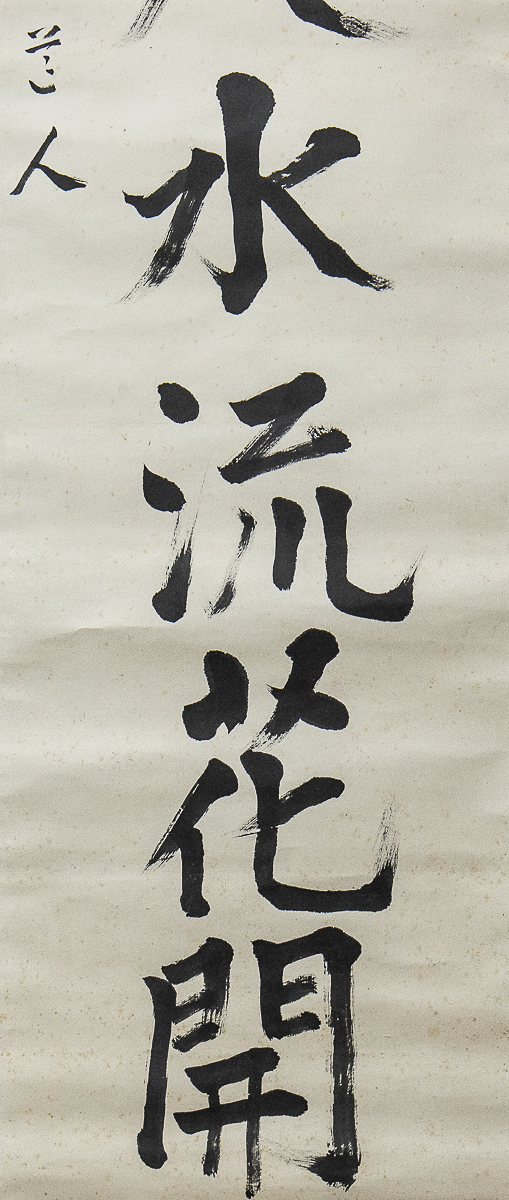 水流花開
人